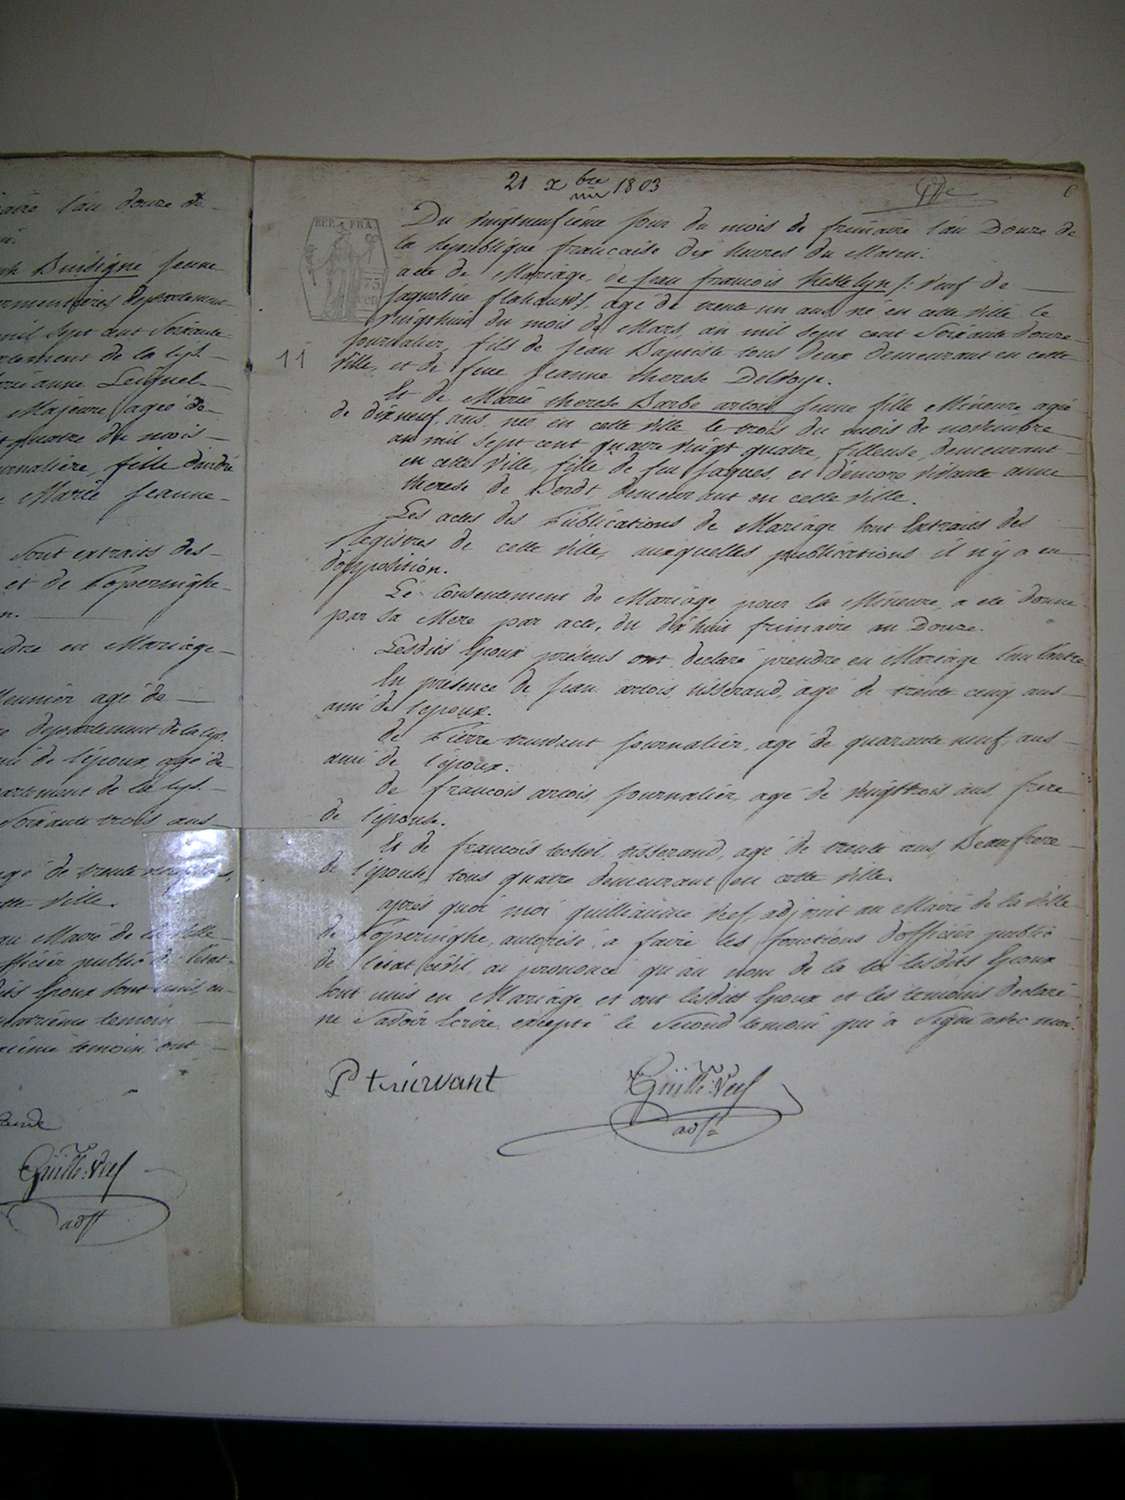 aire l'an douze de
Buisigne jeune
armentieres, departement
mil sept cent Soixante
artement de la lys
Majeure, agée de
quatre du mois
journalière, fille d'andré
Marie Jeanne
Sont extraits des
et de Poperinghe
n.
ndre en Mariage
Meunier agé de
departement de la lys,
mi de l'époux, agé de
artement de la lys.
Soixante trois ans
agé de trente
tte Ville.
au Maire de la Ville
officier public de l'état
dits Epoux sont unis, en
quatrième temoin
xieme temoin ont
Guille: Veef
adjt
21 xbre 1803
REP. FRA.
75
Du vingtneufième jour du mois de frimaire l'an Douze de
la republique française dix heures du Matin.
acte de Mariage, de jean françois Kestelyn, veuf de
Jaqueline, agé de trente un ans, né en cette ville le
vingthuit du mois de Mars, an mil sept cent soixante douze
journalier, fils de Jean Baptiste tous deux demeurant en cette
11
Ville, et de feue Jeanne therese Deldoye.
Et de Marie therese Barbe artois jeune fille Mineure agée
de dixneuf ans, née en cette ville le trois du mois de novembre
an mil sept cent quatre vingt quatre, fileuse, demeurant
en cette Ville, fille de feu Jaques, et d'encore vivante anne
therese de Bordt demeurant en cette ville.
Les actes des Publications de Mariage sont Extraits des
Registres de cette ville, auxquelles publications il n'y a eu
d'opposition.
Le Consentement de Mariage pour la Mineure, a eté donné
par sa Mere par acte, du dixhuit frimaire an Douze.
Lesdits Epoux présens ont déclaré prendre en Mariage l'un l'autre
En presence de Jean artois tisserand, agé de trente cinq ans
ami de l'epoux.
de Pierre truwant journalier, agé de quarante neuf ans
ami de l'époux.
de françois artois, journalier, agé de vingttrois ans frere
de l'épouse.
Et de françois tisserand, agé de trente ans, Beaufrere
de l'épouse, tous quatre demeurant en cette ville.
après quoi moi guilliaume Veef, adjoint au Maire de la Ville
de Poperinghe, autorisé à faire les fonctions d'officier public
de l'etat civil ai prononcé qu'au nom de la loi lesdits Epoux
sont unis en Mariage, et ont lesdits Epoux et les temoins declaré
ne savoir Ecrire excepté le Second temoin qui a Signé avec moi.
P truervant
Guille: Veef
adjt